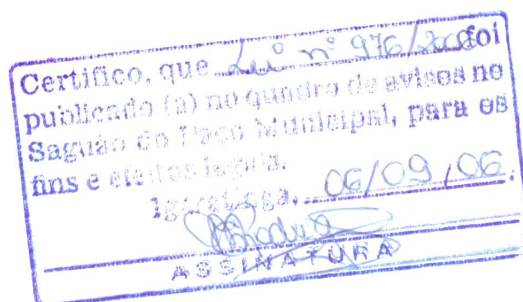 Certifico, que Lei nº 976/2006 foi
publicado (a) no quadro de avisos no
Saguão do Paço Municipal, para os
fins e efeitos legais.
Igaratinga, 06/09/06.
ASSINATURA